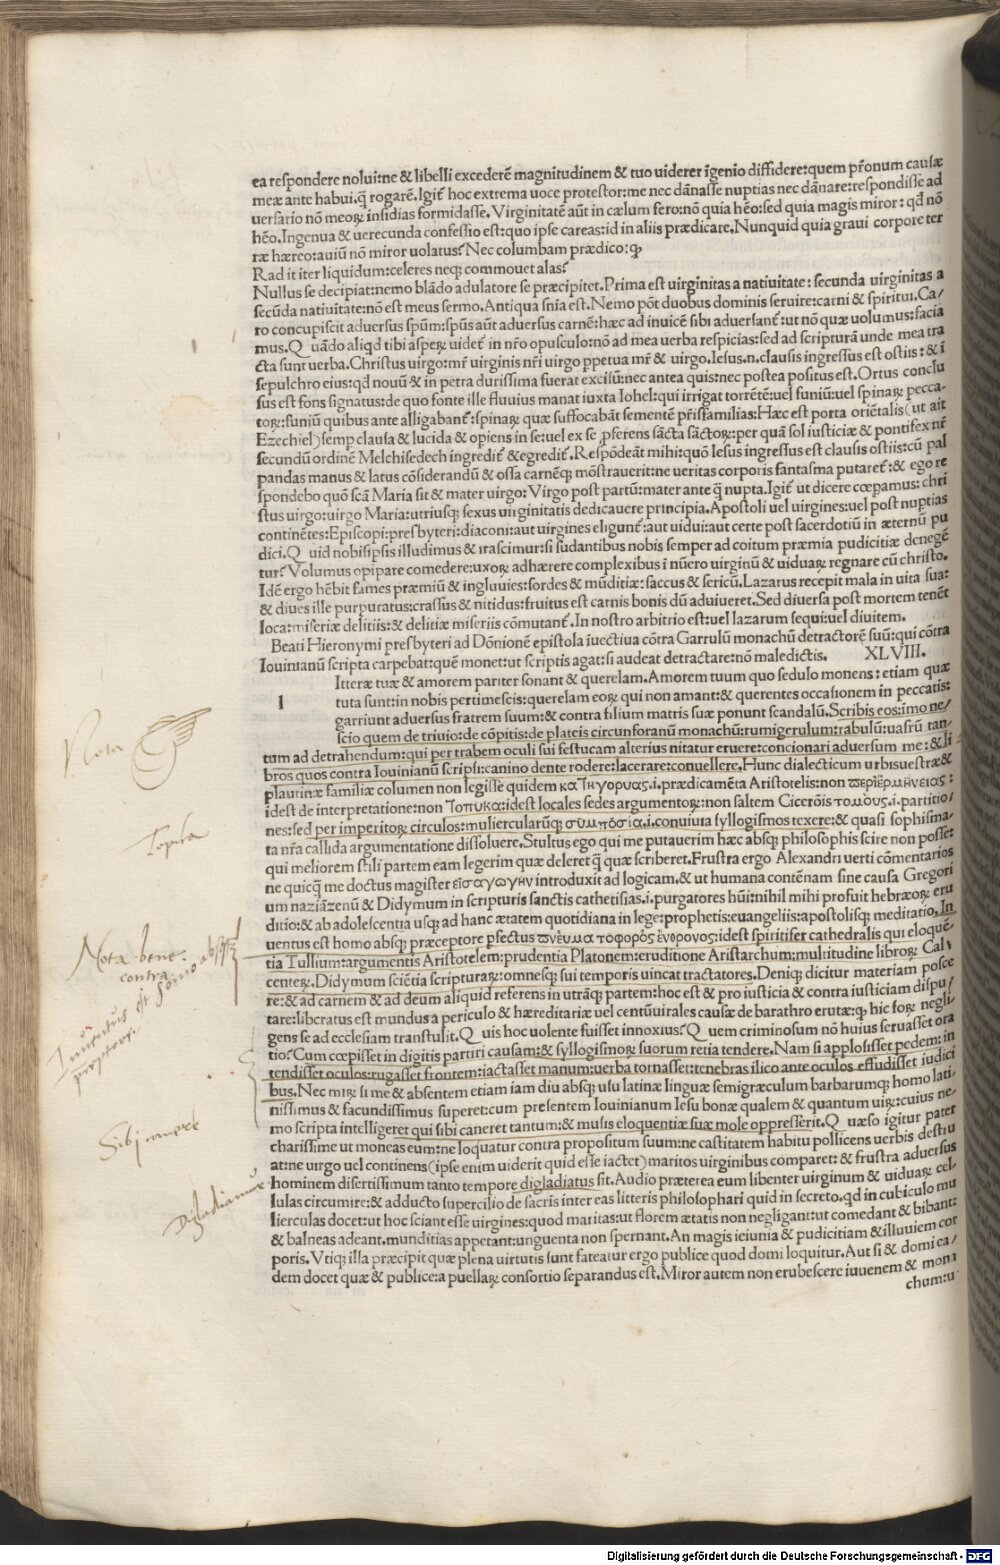 ea respondere nolui:ne & libelli excederẽ magnitudinem & tuo uiderer ĩgenio diffidere:quem pr̃onum causæ
meæ ante habui.q̃ rogarẽ.Igit᷑ hoc extrema uoce protestor:me nec dãnasse nuptias nec dãnare:respondisse ad
uersario nõ meoꝝ insidias formidasse.Virginitatẽ aũt in cælum fero:nõ quia hẽo:sed quia magis miror:qđ nõ
hẽo.Ingenua & uerecunda confessio est:quo ipse careas:id in aliis prædicare.Nunquid quia graui corpore ter
ræ hæreo:auiũ nõ miror uolatus?Nec columbam prædico:ꝙ
Rad it iter liquidum:celeres neqꝫ commouet alas?
Nullus se decipiat:nemo blãdo adulatore se præcipitet.Prima est uirginitas a natiuitate:secunda uirginitas a
secũda natiuitate:nõ est meus sermo.Antiqua sñia est.Nemo põt duobus dominis seruire:carni & spiritui.Ca/
ro concupiscit aduersus spũm:spũs aũt aduersus carnẽ:hæc ad inuicẽ sibi aduersant᷑:ut nõ quæ uolumus:facia
mus.Q uãdo aliqd tibi aspeꝝ uidet᷑ in nr̃o opusculo:nõ ad mea uerba respicias:sed ad scripturã unde mea tra
cta sunt uerba.Christus uirgo:mr̃ uirginis nr̃i uirgo ꝑpetua mr̃ & uirgo.Iesus.n.clausis ingressus est ostiis:& ĩ
sepulchro eius:qđ nouũ & in petra durissima fuerat excisũ:nec antea quis:nec postea positus est.Ortus conclu
sus est fons signatus:de quo fonte ille fluuius manat iuxta Iohel:qui irrigat torrẽtẽ:uel funiũ:uel spinaꝝ pecca-
toꝝ:funiũ quibus ante alligabant᷑:spinaꝝ quæ suffocabãt sementẽ pr̃isfamilias:Hæc est porta oriẽtalis(ut ait
Ezechiel)semp clausa & lucida & opiens in se:uel ex se ꝓferens sãcta sãctoꝝ:per quã sol iusticiæ & pontifex nr̃
secundũ ordinẽ Melchisedech ingredit᷑ &egredit᷑.Respõdeãt mihi:quõ Iesus ingressus est clausis ostiis:cũ pal
pandas manus & latus cõsiderandũ & ossa carnẽqꝫ mõstrauerit:ne ueritas corporis fantasma putaret᷑:& ego re
spondebo quõ scã Maria sit & mater uirgo:Virgo post partũ:mater ante q̃ nupta.Igit᷑ ut dicere cœpamus:chri
stus uirgo:uirgo Maria:utriusqꝫ sexus uirginitatis dedicauere principia.Apostoli uel uirgines:uel post nuptias
continẽtes:Episcopi:presbyteri:diaconi:aut uirgines eligunt᷑:aut uidui:aut certe post sacerdotiũ in æternũ pu
dici.Q uid nobisipsis illudimus & irascimur:si sudantibus nobis semper ad coitum præmia pudicitiæ denegẽ
tur?Volumus opipare comedere:uxoꝝ adhærere complexibus ĩ nũero uirginũ & uiduaꝝ regnare cũ christo.
Idẽ ergo hẽbit fames præmiũ & ingluuies:sordes & mũditiæ:saccus & sericũ.Lazarus recepit mala in uita sua:
& diues ille purpuratus:crassus & nitidus:fruitus est carnis bonis dũ aduiueret.Sed diuersa post mortem tenẽt
loca:miseriæ delitiis:& delitiæ miseriis cõmutant᷑.In nostro arbitrio est:uel lazarum sequi:uel diuitem.
Beati Hieronymi presbyteri ad Dõnionẽ epistola iuectiua cõtra Garrulũ monachũ detractorẽ suũ:qui cõtra
Iouinianũ scripta carpebat:quẽ monet:ut scriptis agat:si audeat detractare:nõ maledictis. XLVIII.
l Itteræ tuæ & amorem pariter sonant & querelam.Amorem tuum quo sedulo monens:etiam quæ
tuta sunt:in nobis pertimescis:querelam eoꝝ qui non amant:& querentes occasionem in peccatis:
garriunt aduersus fratrem suum:& contra filium matris suæ ponunt scandalũ.Scribis eos:imo ne/
scio quem de triuio:de cõpitis:de plateis circunforanũ monachũ:rumigerulum:rabulũ:uafrũ tan-
tum ad detrahendum:qui per trabem oculi sui festucam alterius nitatur eruere:concionari aduersum me:& li
bros quos contra Iouinianũ scripsi:canino dente rodere:lacerare:conuellere.Hunc dialecticum urbisuestræ&
plautinæ familiæ columen non legisse quidem κατηγορυας.i.prædicamẽta Aristotelis:non περὶερμηνείας:
idest de interpretatione:non τοπυκα:idest locales sedes argumentoꝝ:non saltem Cicerõis τομους.i.partitio/
nes:sed per imperitoꝝ circulos:muliercularũqꝫ συμπόσια.i.conuiuia syllogismos texere:& quasi sophisma-
ta nr̃a callida argumentatione dissoluere.Stultus ego qui me putauerim hæc absqꝫ philosophis scire non posse:
qui meliorem stili partem eam legerim quæ deleret q̃ quæ scriberet.Frustra ergo Alexandri uerti cõmentarios
ne quicq̃ me doctus magister εισαγωγην introduxit ad logicam.& ut humana contẽnam sine causa Gregori
um naziãzenũ & Didymum in scripturis sanctis cathetisias.i.purgatores hũi:nihil mihi profuit hebræoꝝ eru
ditio:& ab adolescentia usqꝫ ad hanc ætatem quotidiana in lege:prophetis:euangeliis:apostolisqꝫ meditatio.In
uentus est homo absqꝫ præceptore ꝑfectus πνέυμα τοφορὸς ἔνθρονος:idest spiritifer cathedralis qui eloquẽ-
tia Tullium:argumentis Aristotelem:prudentia Platonem:eruditione Aristarchum:multitudine libroꝝ Calν
centeꝝ.Didymum sciẽtia scripturaꝝ:omnesqꝫ sui temporis uincat tractatores.Deniqꝫ dicitur materiam posce
re:& ad carnem & ad deum aliquid referens in utrãqꝫ partem:hoc est & pro iusticia & contra iusticiam dispu/
tare:liberatus est mundus a periculo & hæreditariæ uel centũuirales causæ de barathro erutæ:ꝙ hic foꝝ negli-
gens se ad ecclesiam transtulit.Q uis hoc uolente fuisset innoxius?Q uem criminosum nõ huius seruasset ora
tio?Cum cœpisset in digitis partiri causam:& syllogismoꝝ suorum retia tendere.Nam si applosisset pedem:in
tendisset oculos:rugasset frontem:iactasset manum:uerba tornasset:tenebras ilico ante oculos effudisset iudici
bus.Nec miꝝ si me & absentem etiam iam diu absqꝫ usu latinæ linguæ semigræculum barbarumqꝫ homo lati-
nissimus & facundissimus superet:cum presentem Iouinianum Iesu bonæ qualem & quantum uiꝝ:cuius ne-
mo scripta intelligeret qui sibi caneret tantum:& musis eloquentiæ suæ mole oppresserit.Q uæso igitur pater
charissime ut moneas eum:ne loquatur contra propositum suum:ne castitatem habitu pollicens uerbis destru
at:ne uirgo uel continens(ipse enim uiderit quid esse iactet)maritos uirginibus comparet:& frustra aduersus
hominem disertissimum tanto tempore digladiatus sit.Audio præterea eum libenter uirginum & uiduaꝝ cel-
lulas circumire:& adducto supercilio de sacris inter eas litteris philosophari quid in secreto.qđ in cubiculo mu
lierculas docet:ut hoc sciant esse uirgines:quod maritas:ut florem ætatis non negligant:ut comedant & bibant:
& balneas adeant.munditias appetant:unguenta non spernant.An magis ieiunia & pudicitiam &illuuiem cor
poris.Vtiqꝫ illa præcipit quæ plena uirtutis sunt fateatur ergo publice quod domi loquitur.Aut si & domi ea/
dem docet quæ & publice:a puellaꝝ consortio separandus est.Miror autem non erubescere iuuenem & mona
chum:u
Nota
Topica
Nota bene.
contra
Inuentus est homo absqꝫ
pręceptore.
Sibi canere
Digladiamur
Digitalisierung gefördert durch die Deutsche Forschungsgemeinschaft - DFG